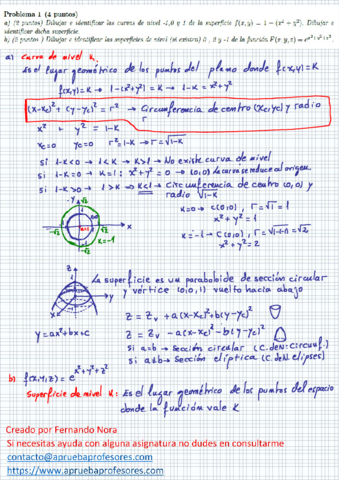 Problema 1 (4 puntos)
a) (2 puntos) Dibujar e identificar las curvas de nivel -1,0 y 1 de la superficie f(x,y) = 1 − (x² + y²). Dibujar e
identificar dicha superficie.
b) (2 puntos) Dibujar e identificar las superficies de nivel (si existen) 0, 1 y -1 de la función F(x,y,z) = e^x²+y²+z².
a) Curva de nivel K.
Es el lugar geométrico de los puntos del plano donde f(x,y)=K
f(x,y)=K → 1-(x²+y²)=K → 1-K = x²+y²
(x-xc)²+(y-yc)²=r² → Circunferencia de centro (xc,yc) y radio
r
x² + y² = 1-K
xc=0 yc=0 r²=1-K → r=√1-K
si 1-K<0 → 1<K → K>1 → No existe curva de nivel
si 1-K=0 → K=1: x²+y²=0 → (0,0) La curva se reduce al origen
si 1-K>0 → 1>K → K<1 → Circunferencia de centro (0,0) y
radio √1-K
K=0 → C(0,0), r=√1=1
x²+y²=1
K=-1 → C(0,0), r=√1-(-1)=√2
x²+y²=2
y √2
-√2 √2 x
K=-1
-√2
z
1
x y
La superficie es un paraboloide de sección circular
y vértice (0,0,1) vuelto hacia abajo
z = zv + a(x-xc)²+b(y-yc)²
y=ax²+bx+c
z = zv - a(x-xc)²-b(y-yc)²
si a=b → Sección circular (C. de N: Circunf.)
si a≠b → Sección elíptica (C. de N. elipses)
b) f(x,y,z)=e^x²+y²+z²
Superficie de nivel K: Es el lugar geométrico de los puntos del espacio
donde la función vale K
Creado por Fernando Nora
Si necesitas ayuda con alguna asignatura no dudes en consultarme
contacto@apruebaprofesores.com
https://www.apruebaprofesores.com